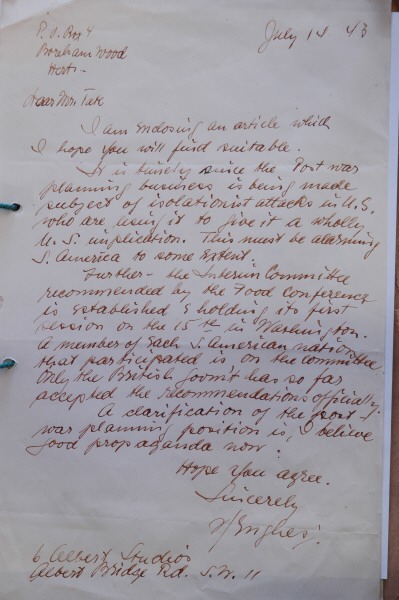 P.O. Box 4
July 14 43
Boreham Wood
Herts -
Dear Mrs
I am enclosing an article which
I hope you will find suitable.
It is timely since the Post war
planning business is being made
subject of isolationist attacks in U.S.
who are using it to give it a wholly
U.S. implication. This must be alarming
S. America to some extent.
Further - the Interim Committee
recommended by the Food Conference
is established & holding its first
session on the 15th in Washington.
A member of each S. American nation
that participated is on the committee.
Only the British Govm't has so far
accepted the recommendations officially.
A clarification of the post-
war planning position is, I believe
good propaganda now.
Hope you agree.
Sincerely
6 Albert Studios
Albert Bridge Rd. S.W. 11